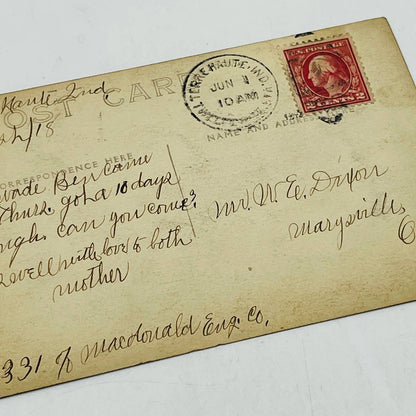 Haute, Ind.
2/18
POST CARD
TERRE HAUTE, IND.
JUN 1
10 AM
U.S. POSTAGE
2 CENTS 2
NAME AND ADDRESS HERE
CORRESPONDENCE HERE
wade Ben came
Thurs. got a 10 days
can you come?
well with love to both
mother
Mr. W. E. Dixon
Marysville
331 % Macdonald Eng. Co.